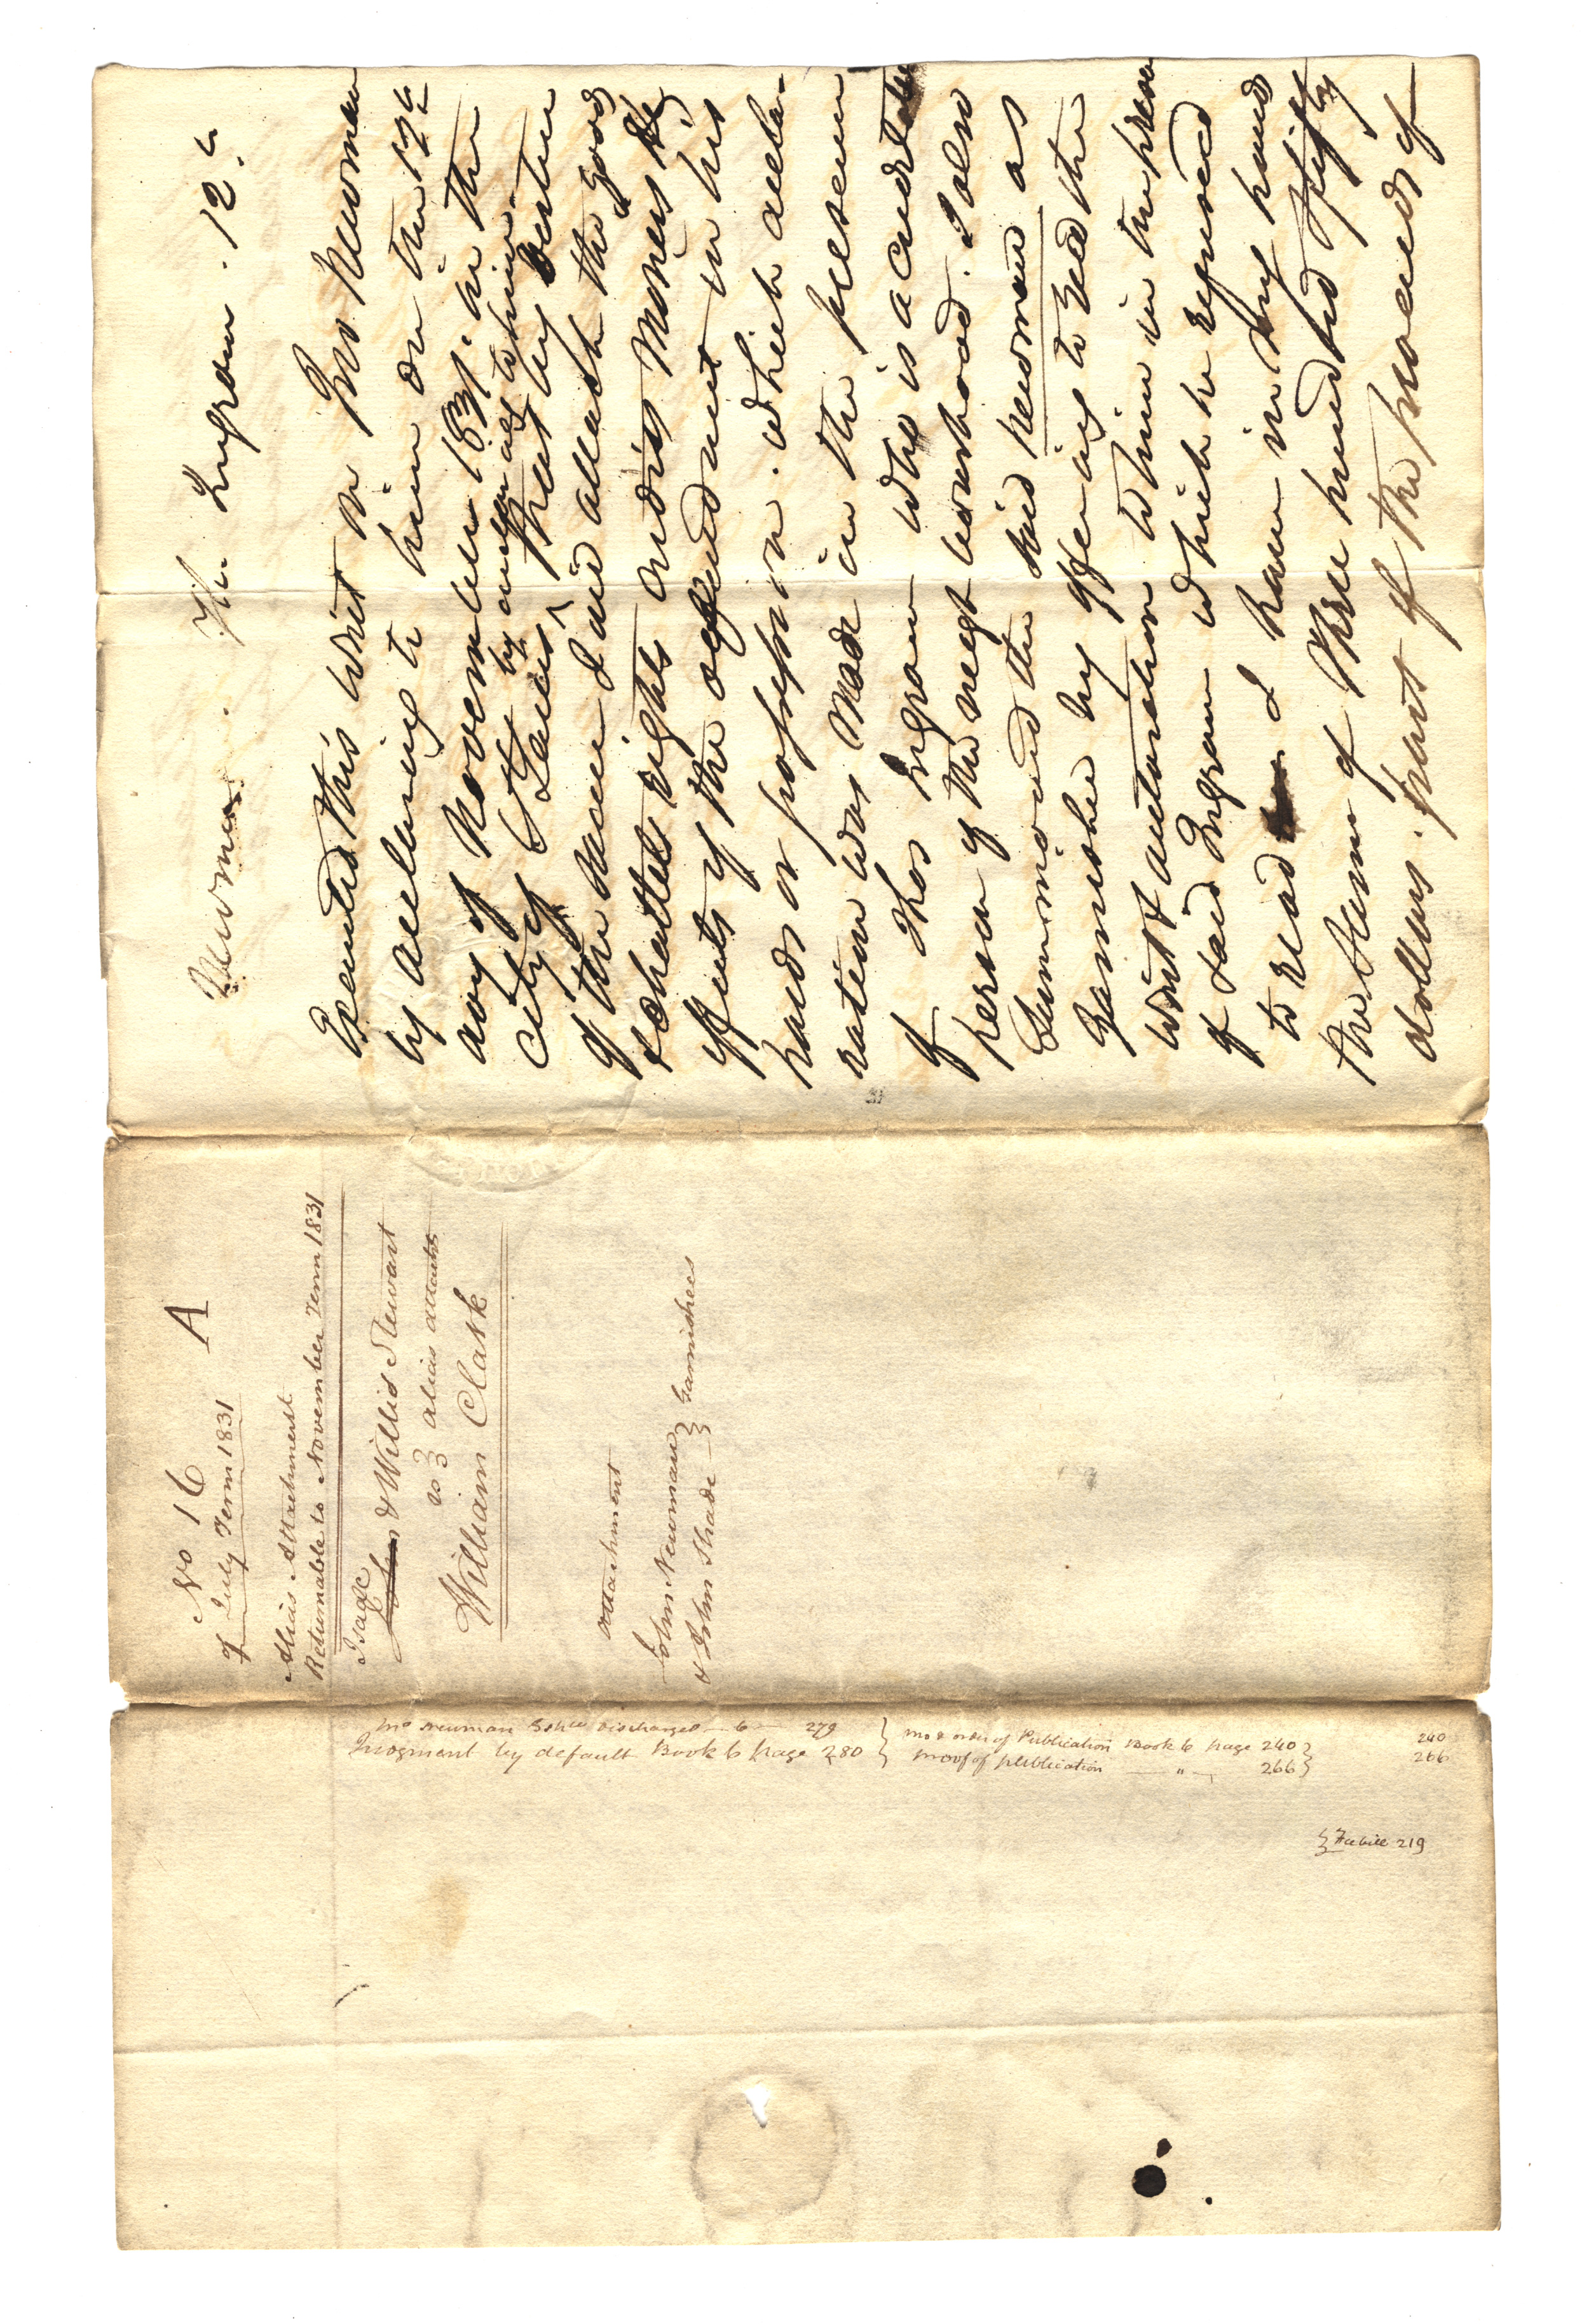 Newman . Thos Ingram . 12.
Executed this writ on Jno Newman
by declaring to him on the 12th
day of November 1831. in the
City of St Louis by endeavoring to him
that by virtue
of the same I did attach the goods
& chattels rights credits Moneys &
effects of the defendant in his
hands or possession . which decla-
ration was made in the presence
of Thos Ingram who is a creditable
person of the neighbourhood . I also
Summoned the said Newman as
Garnishee by offering to read the
writ & declaration to him in the presence
of said Ingram which he refused
to read I have in my hands
the Sum of Three hundred & fifty
dollars . part of the proceeds of
No 16 A
of July Term 1831
Alias Attachment
Returnable to November Term 1831
Isaac
John & Willis Stewart
vs } alias attacht
William Clark
attachment
John Newman }
& John Shade } Garnishees
Mo Newman Gshee discharged — 6 — 279
Judgment by default Book 6 page 280
Mo & order of Publication Book 6 page 240
proof of publication — " — 266
240
266
} Feebill 219